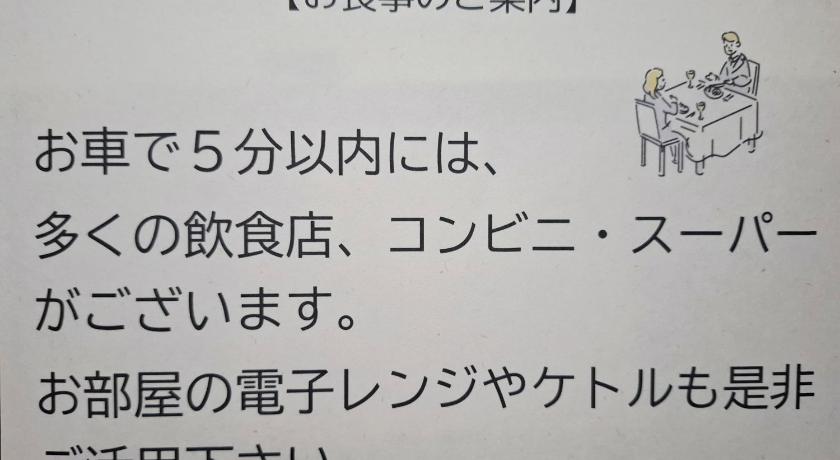 【お食事のご案内】
お車で５分以内には、
多くの飲食店、コンビニ・スーパー
がございます。
お部屋の電子レンジやケトルも是非
ご活用下さい